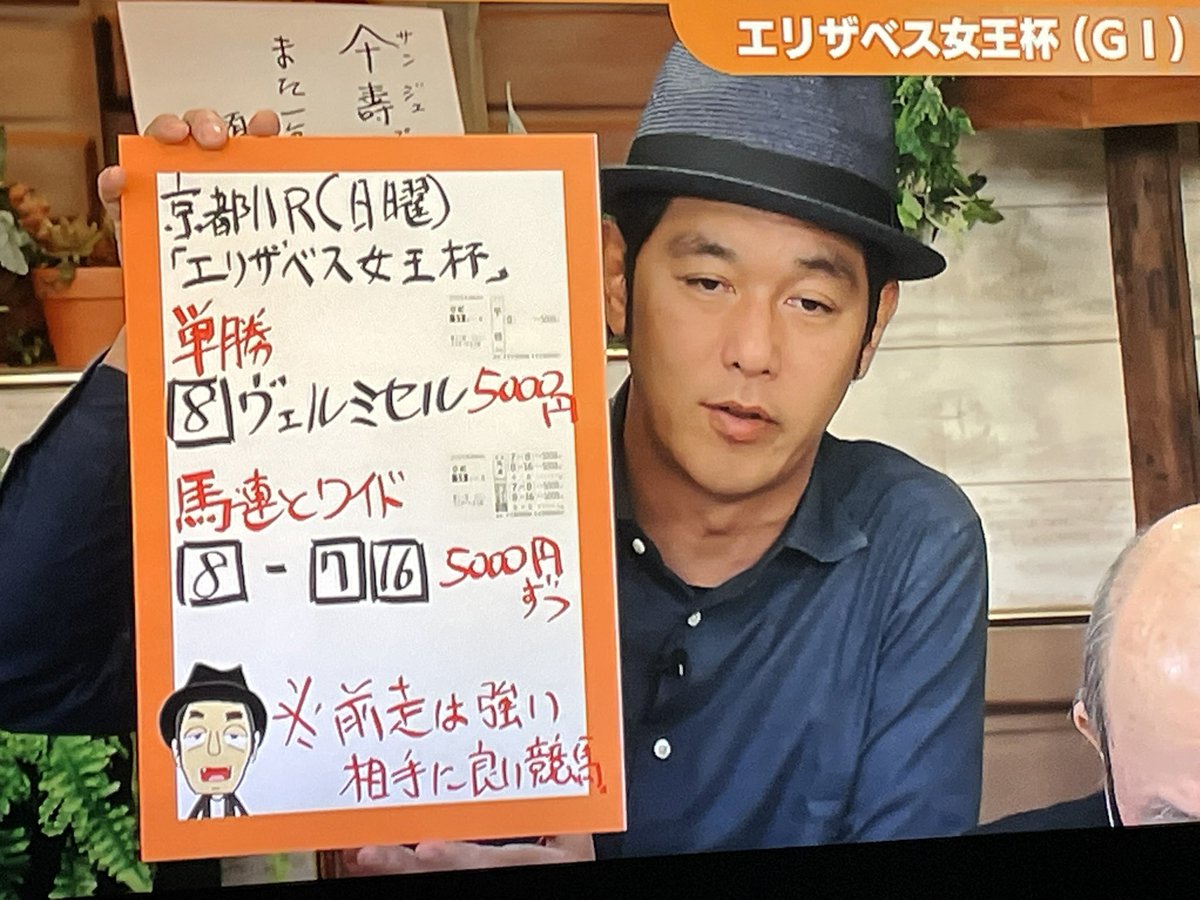 エリザベス女王杯（GⅠ）
サンジュ
傘壽
また一
京都11R(日曜)
「エリザベス女王杯」
単勝
8 ヴェルミセル 5000円
馬連とワイド
8 - 7 16 5000円ずつ
※前走は強い
相手に良い競馬